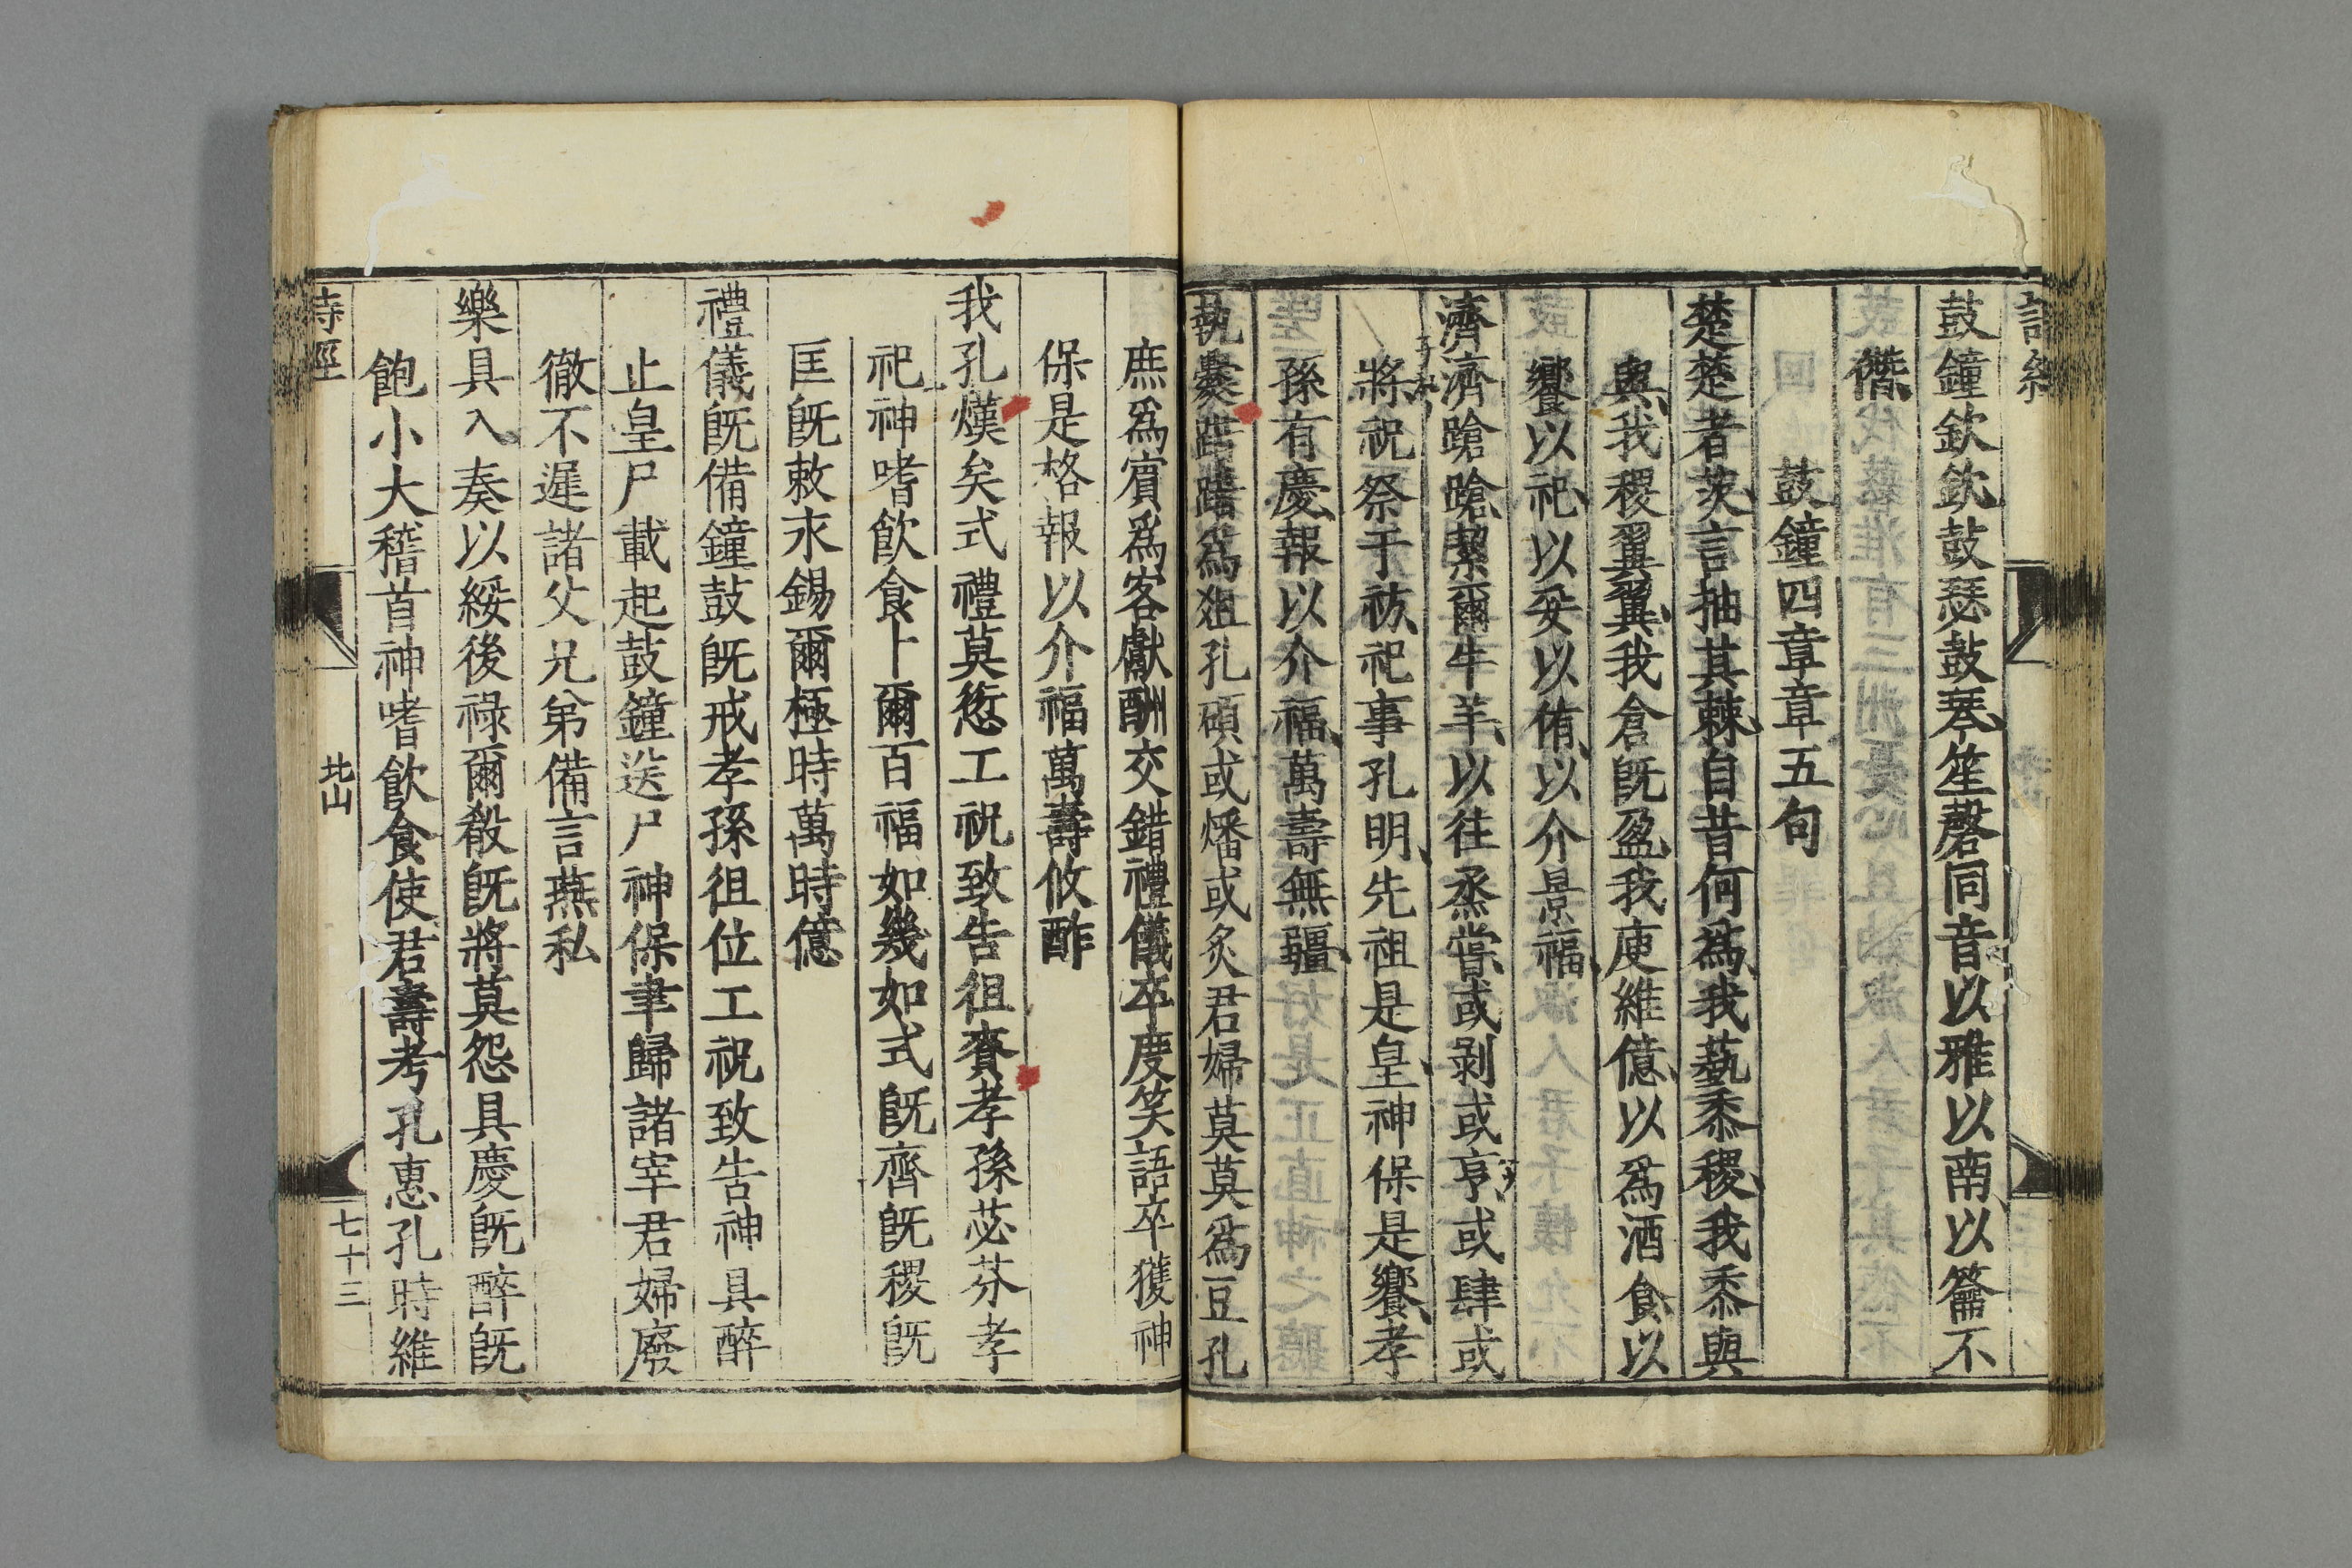 鼓鐘欽欽鼓瑟鼓琴笙磬同音以雅以南以籥不
僭
鼓鐘四章章五句
楚楚者茨言抽其棘自昔何為我蓺黍稷我黍與
與我稷翼翼我倉旣盈我庾維億以爲酒食以
饗以祀以妥以侑以介景福
濟濟蹌蹌絜爾牛羊以往烝嘗或剝或亨或肆或
將祝祭于祊祀事孔明先祖是皇神保是饗孝
孫有慶報以介福萬壽無疆
執爨踖踖爲俎孔碩或燔或炙君婦莫莫爲豆孔
庶爲賓爲客獻酬交錯禮儀卒度笑語卒獲神
保是格報以介福萬壽攸酢
我孔熯矣式禮莫愆工祝致告徂賚孝孫苾芬孝
祀神嗜飮食卜爾百福如幾如式旣齊旣稷旣
匡旣敕永錫爾極時萬時億
禮儀旣備鐘鼓旣戒孝孫徂位工祝致告神具醉
止皇尸載起鼓鐘送尸神保聿歸諸宰君婦廢
徹不遲諸父兄弟備言燕私
樂具入奏以綏後祿爾殽旣將莫怨具慶旣醉旣
飽小大稽首神嗜飮食使君壽考孔惠孔時維
詩經 北山 七十三